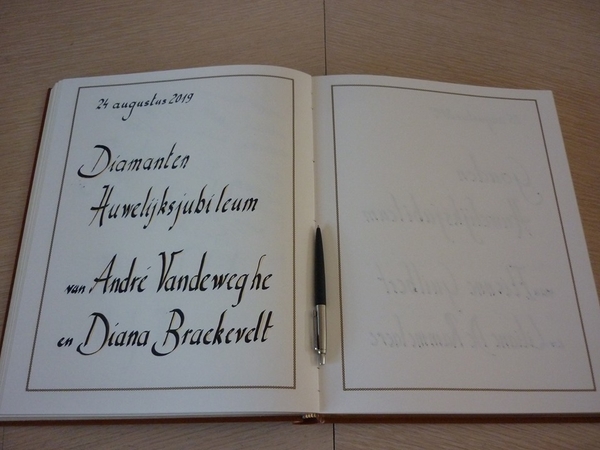 24 augustus 2019
Diamanten
Huwelijksjubileum
van André Vandeweghe
en Diana Braekevelt